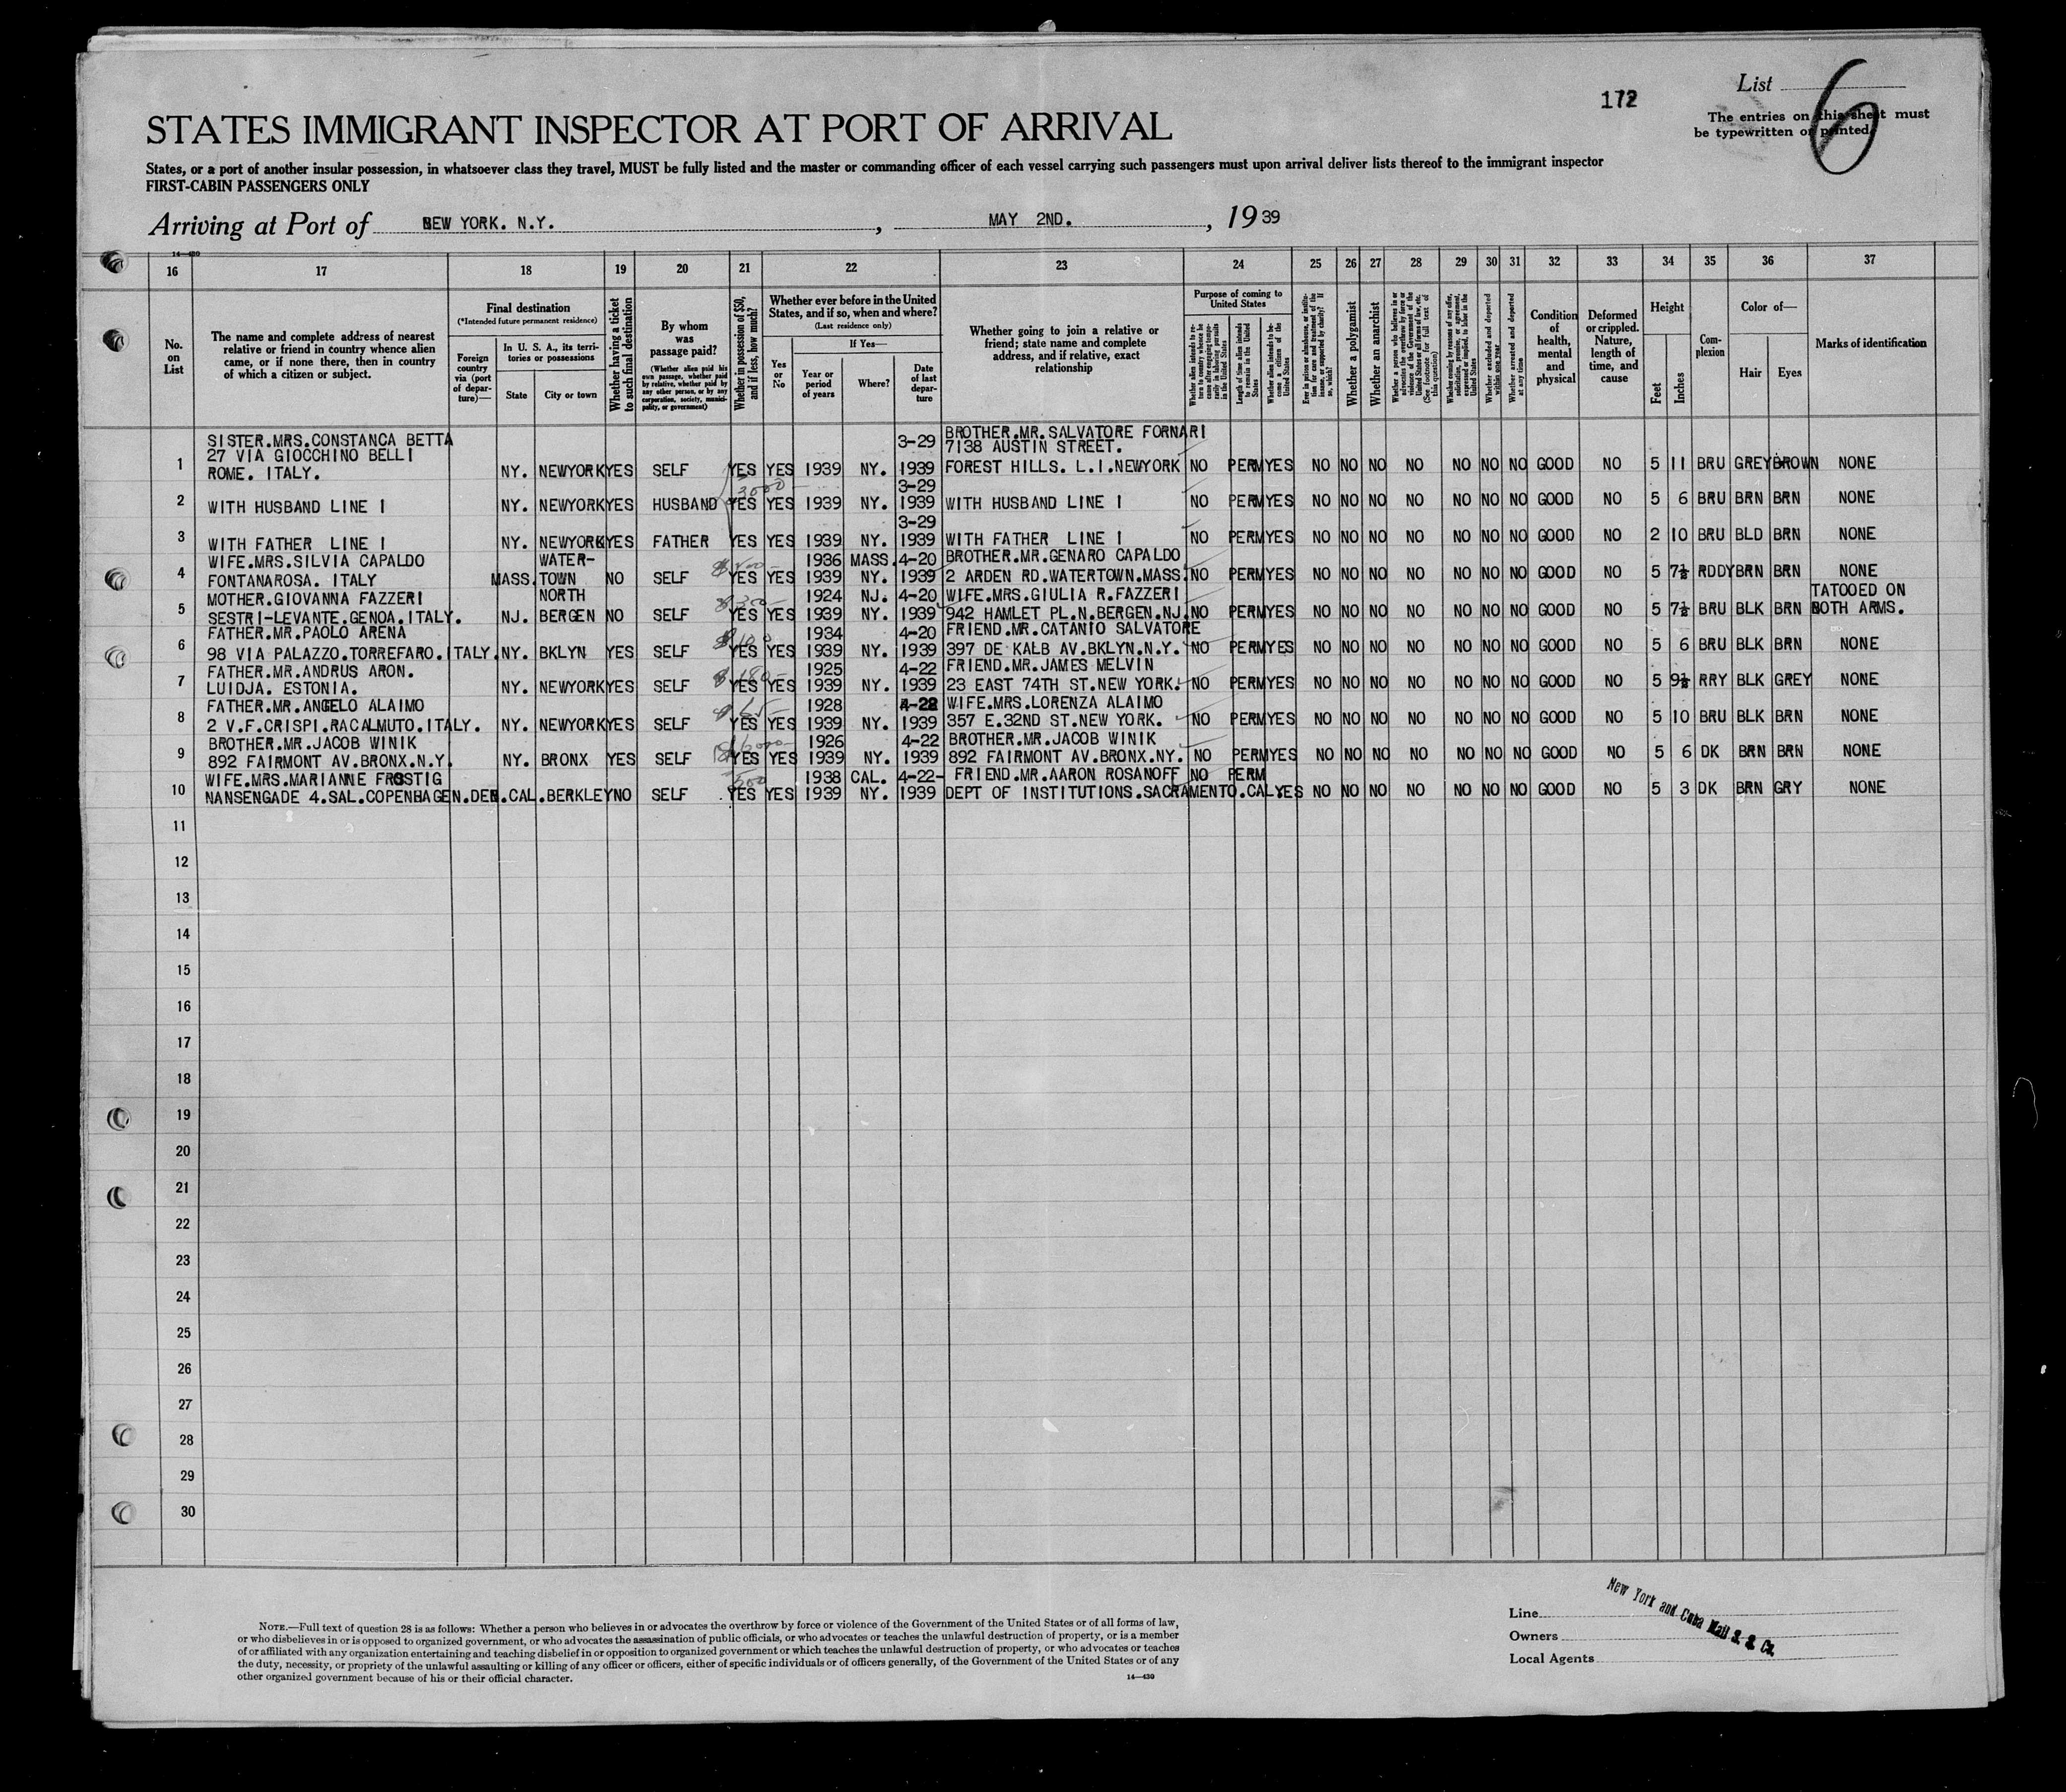 172
List 6
The entries on this sheet must
be typewritten or printed.
STATES IMMIGRANT INSPECTOR AT PORT OF ARRIVAL
States, or a port of another insular possession, in whatsoever class they travel, MUST be fully listed and the master or commanding officer of each vessel carrying such passengers must upon arrival deliver lists thereof to the immigrant inspector
FIRST-CABIN PASSENGERS ONLY
Arriving at Port of BEW YORK. N.Y. , MAY 2ND. , 19 39
14—430
16 17 18 19 20 21 22 23 24 25 26 27 28 29 30 31 32 33 34 35 36 37
No.
on
List
The name and complete address of nearest
relative or friend in country whence alien
came, or if none there, then in country
of which a citizen or subject.
Final destination
(*Intended future permanent residence)
Foreign
country
via (port
of depar-
ture)—
In U. S. A., its terri-
tories or possessions
State
City or town
Whether having a ticket
to such final destination
By whom
was
passage paid?
(Whether alien paid his
own passage, whether paid
by relative, whether paid by
any other person, or by any
corporation, society, munici-
pality, or government)
Whether in possession of $50,
and if less, how much?
Whether ever before in the United
States, and if so, when and where?
(Last residence only)
Yes
or
No
If Yes—
Year or
period
of years
Where?
Date
of last
depar-
ture
Whether going to join a relative or
friend; state name and complete
address, and if relative, exact
relationship
Purpose of coming to
United States
Length of time alien intends
to remain in the United
States
Whether alien intends to be-
come a citizen of the
United States
Whether a polygamist
Whether an anarchist
Whether excluded and deported
within one year
Whether arrested and deported
at any time
Condition
of
health,
mental
and
physical
Deformed
or crippled.
Nature,
length of
time, and
cause
Height
Feet
Inches
Com-
plexion
Color of—
Hair
Eyes
Marks of identification
SISTER.MRS.CONSTANCA BETTA 3-29 BROTHER.MR.SALVATORE FORNARI
27 VIA GIOCCHINO BELLI 7138 AUSTIN STREET.
1 ROME. ITALY. NY. NEWYORK YES SELF YES YES 1939 NY. 1939 FOREST HILLS. L.I.NEWYORK NO PERM YES NO NO NO NO NO NO NO GOOD NO 5 11 BRU GREY BROWN NONE
3000 3-29
2 WITH HUSBAND LINE 1 NY. NEWYORK YES HUSBAND YES YES 1939 NY. 1939 WITH HUSBAND LINE 1 NO PERM YES NO NO NO NO NO NO NO GOOD NO 5 6 BRU BRN BRN NONE
3-29
3 WITH FATHER LINE 1 NY. NEWYORK YES FATHER YES YES 1939 NY. 1939 WITH FATHER LINE 1 NO PERM YES NO NO NO NO NO NO NO GOOD NO 2 10 BRU BLD BRN NONE
WIFE.MRS.SILVIA CAPALDO WATER- 1936 MASS. 4-20 BROTHER.MR.GENARO CAPALDO
4 FONTANAROSA. ITALY MASS. TOWN NO SELF YES YES 1939 NY. 1939 2 ARDEN RD.WATERTOWN.MASS. NO PERM YES NO NO NO NO NO NO NO GOOD NO 5 7½ RDDY BRN BRN NONE
MOTHER.GIOVANNA FAZZERI NORTH 1924 NJ. 4-20 WIFE.MRS.GIULIA R.FAZZERI TATOOED ON
5 SESTRI-LEVANTE.GENOA.ITALY. NJ. BERGEN NO SELF YES YES 1939 NY. 1939 942 HAMLET PL.N.BERGEN.NJ. NO PERM YES NO NO NO NO NO NO NO GOOD NO 5 7½ BRU BLK BRN BOTH ARMS.
FATHER.MR.PAOLO ARENA 1934 4-20 FRIEND.MR.CATANIO SALVATORE
6 98 VIA PALAZZO.TORREFARO.ITALY. NY. BKLYN YES SELF YES YES 1939 NY. 1939 397 DE KALB AV.BKLYN.N.Y. NO PERM YES NO NO NO NO NO NO NO GOOD NO 5 6 BRU BLK BRN NONE
FATHER.MR.ANDRUS ARON. 1925 4-22 FRIEND.MR.JAMES MELVIN
7 LUIDJA. ESTONIA. NY. NEWYORK YES SELF YES YES 1939 NY. 1939 23 EAST 74TH ST.NEW YORK. NO PERM YES NO NO NO NO NO NO NO GOOD NO 5 9½ RRY BLK GREY NONE
FATHER.MR.ANGELO ALAIMO 1928 4-22 WIFE.MRS.LORENZA ALAIMO
8 2 V.F.CRISPI.RACALMUTO.ITALY. NY. NEWYORK YES SELF YES YES 1939 NY. 1939 357 E.32ND ST.NEW YORK. NO PERM YES NO NO NO NO NO NO NO GOOD NO 5 10 BRU BLK BRN NONE
BROTHER.MR.JACOB WINIK 1926 4-22 BROTHER.MR.JACOB WINIK
9 892 FAIRMONT AV.BRONX.N.Y. NY. BRONX YES SELF YES YES 1939 NY. 1939 892 FAIRMONT AV.BRONX.NY. NO PERM YES NO NO NO NO NO NO NO GOOD NO 5 6 DK BRN BRN NONE
WIFE.MRS.MARIANNE FROSTIG 500 1938 CAL. 4-22- FRIEND.MR.AARON ROSANOFF NO PERM
10 NANSENGADE 4.SAL.COPENHAGEN.DEN. CAL. BERKLEY NO SELF YES YES 1939 NY. 1939 DEPT OF INSTITUTIONS.SACRAMENTO.CAL YES NO NO NO NO NO NO NO GOOD NO 5 3 DK BRN GRY NONE
11
12
13
14
15
16
17
18
19
20
21
22
23
24
25
26
27
28
29
30
NOTE.—Full text of question 28 is as follows: Whether a person who believes in or advocates the overthrow by force or violence of the Government of the United States or of all forms of law,
or who disbelieves in or is opposed to organized government, or who advocates the assassination of public officials, or who advocates or teaches the unlawful destruction of property, or is a member
of or affiliated with any organization entertaining and teaching disbelief in or opposition to organized government or which teaches the unlawful destruction of property, or who advocates or teaches
the duty, necessity, or propriety of the unlawful assaulting or killing of any officer or officers, either of specific individuals or of officers generally, of the Government of the United States or of any
other organized government because of his or their official character.
14—430
Line
Owners
Local Agents
New York and Cuba Mail S. S. Co.